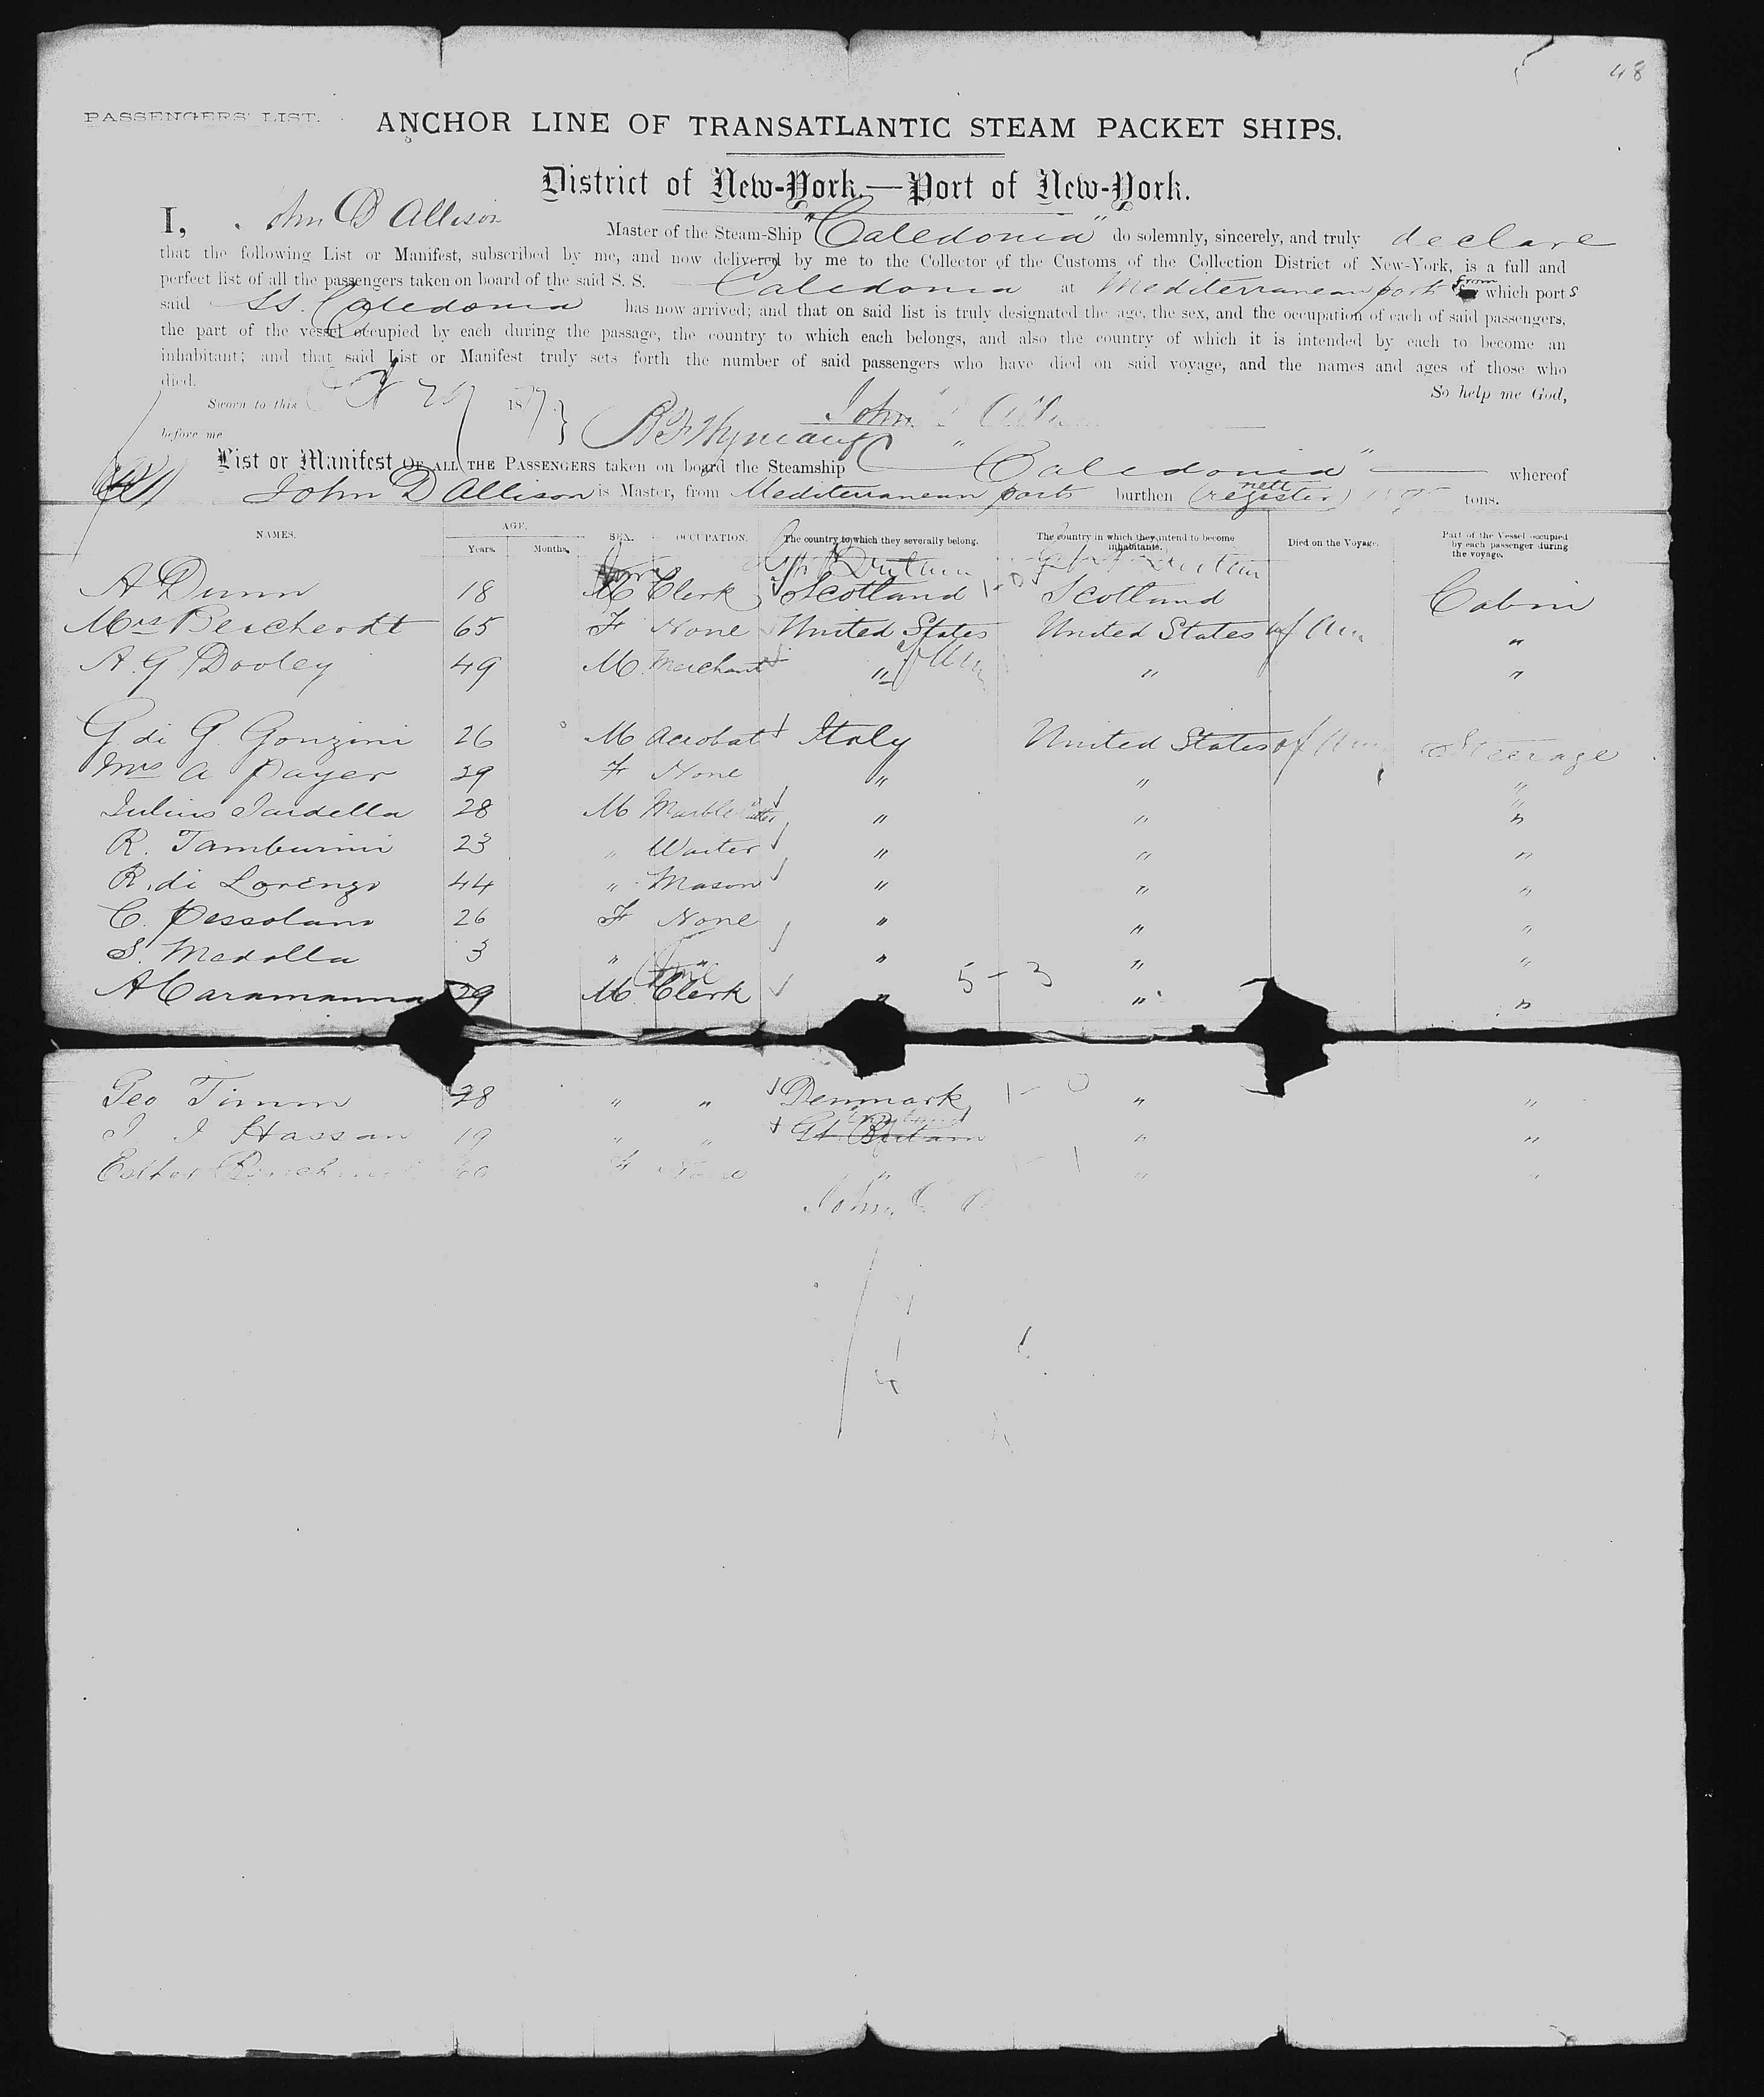 48
PASSENGERS' LIST.
ANCHOR LINE OF TRANSATLANTIC STEAM PACKET SHIPS.
District of New-York.—Port of New-York.
I, John D Allison Master of the Steam-Ship "Caledonia" do solemnly, sincerely, and truly declare
that the following List or Manifest, subscribed by me, and now delivered by me to the Collector of the Customs of the Collection District of New-York, is a full and
perfect list of all the passengers taken on board of the said S. S. Caledonia at Mediterranean ports from which ports
said SS. Caledonia has now arrived; and that on said list is truly designated the age, the sex, and the occupation of each of said passengers,
the part of the vessel occupied by each during the passage, the country to which each belongs, and also the country of which it is intended by each to become an
inhabitant; and that said List or Manifest truly sets forth the number of said passengers who have died on said voyage, and the names and ages of those who
died. So help me God,
Sworn to this 187
before me
John
List or Manifest OF ALL THE PASSENGERS taken on board the Steamship "Caledonia" whereof
John D Allison is Master, from Mediterranean ports burthen (nett register) tons.
NAMES. AGE. Years. Months. SEX. OCCUPATION. The country to which they severally belong. The country in which they intend to become inhabitants. Died on the Voyage. Part of the Vessel occupied by each passenger during the voyage.
Gt Britain
A Dunn 18 M Clerk Scotland 1-0 Scotland Cabin
Mrs Beicherdt 65 F None United States United States of Am "
A. G Dooley 49 M. Merchant " of Am " "
G di G. Gonzini 26 M Acrobat Italy United States of Am Steerage
Mrs A Payer 29 F None " " "
Julius Jardella 28 M Marble cutter " " "
R. Tamburini 23 " Waiter " " "
R. di Lorenzo 44 " Mason " " "
C. Pessolano 26 F None " " "
S. Medolla 3 " " " " "
A Caramanna 29 M Clerk " 5-3 " "
Geo Timm 28 " " Denmark 1-0 " "
J J Hassan 19 " " Gt Britain " "
Esther 60 F None " 1-1 " "
John